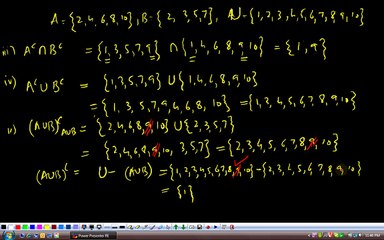 A = {2,4,6,8,10}, B = {2, 3,5,7}, U = {1,2,3,4,5,6,7,8,9,10}
iii) Aᶜ∩Bᶜ = {1,3,5,7,9} ∩ {1,4,6,8,9,10} = {1,9}
iv) Aᶜ∪Bᶜ = {1,3,5,7,9} ∪ {1,4,6,8,9,10}
= {1,3,5,7,9,4,6,8,10} = {1,3,4,5,6,7,8,9,10}
v) (A∪B)ᶜ A∪B = {2,4,6,8,9,10} ∪ {2,3,5,7}
= {2,4,6,8,9,10,3,5,7} = {2,3,4,5,6,7,8,9,10}
(A∪B)ᶜ = U − (A∪B) = {1,2,3,4,5,6,7,8,9,10} − {2,3,4,5,6,7,8,9,10}
= {1}